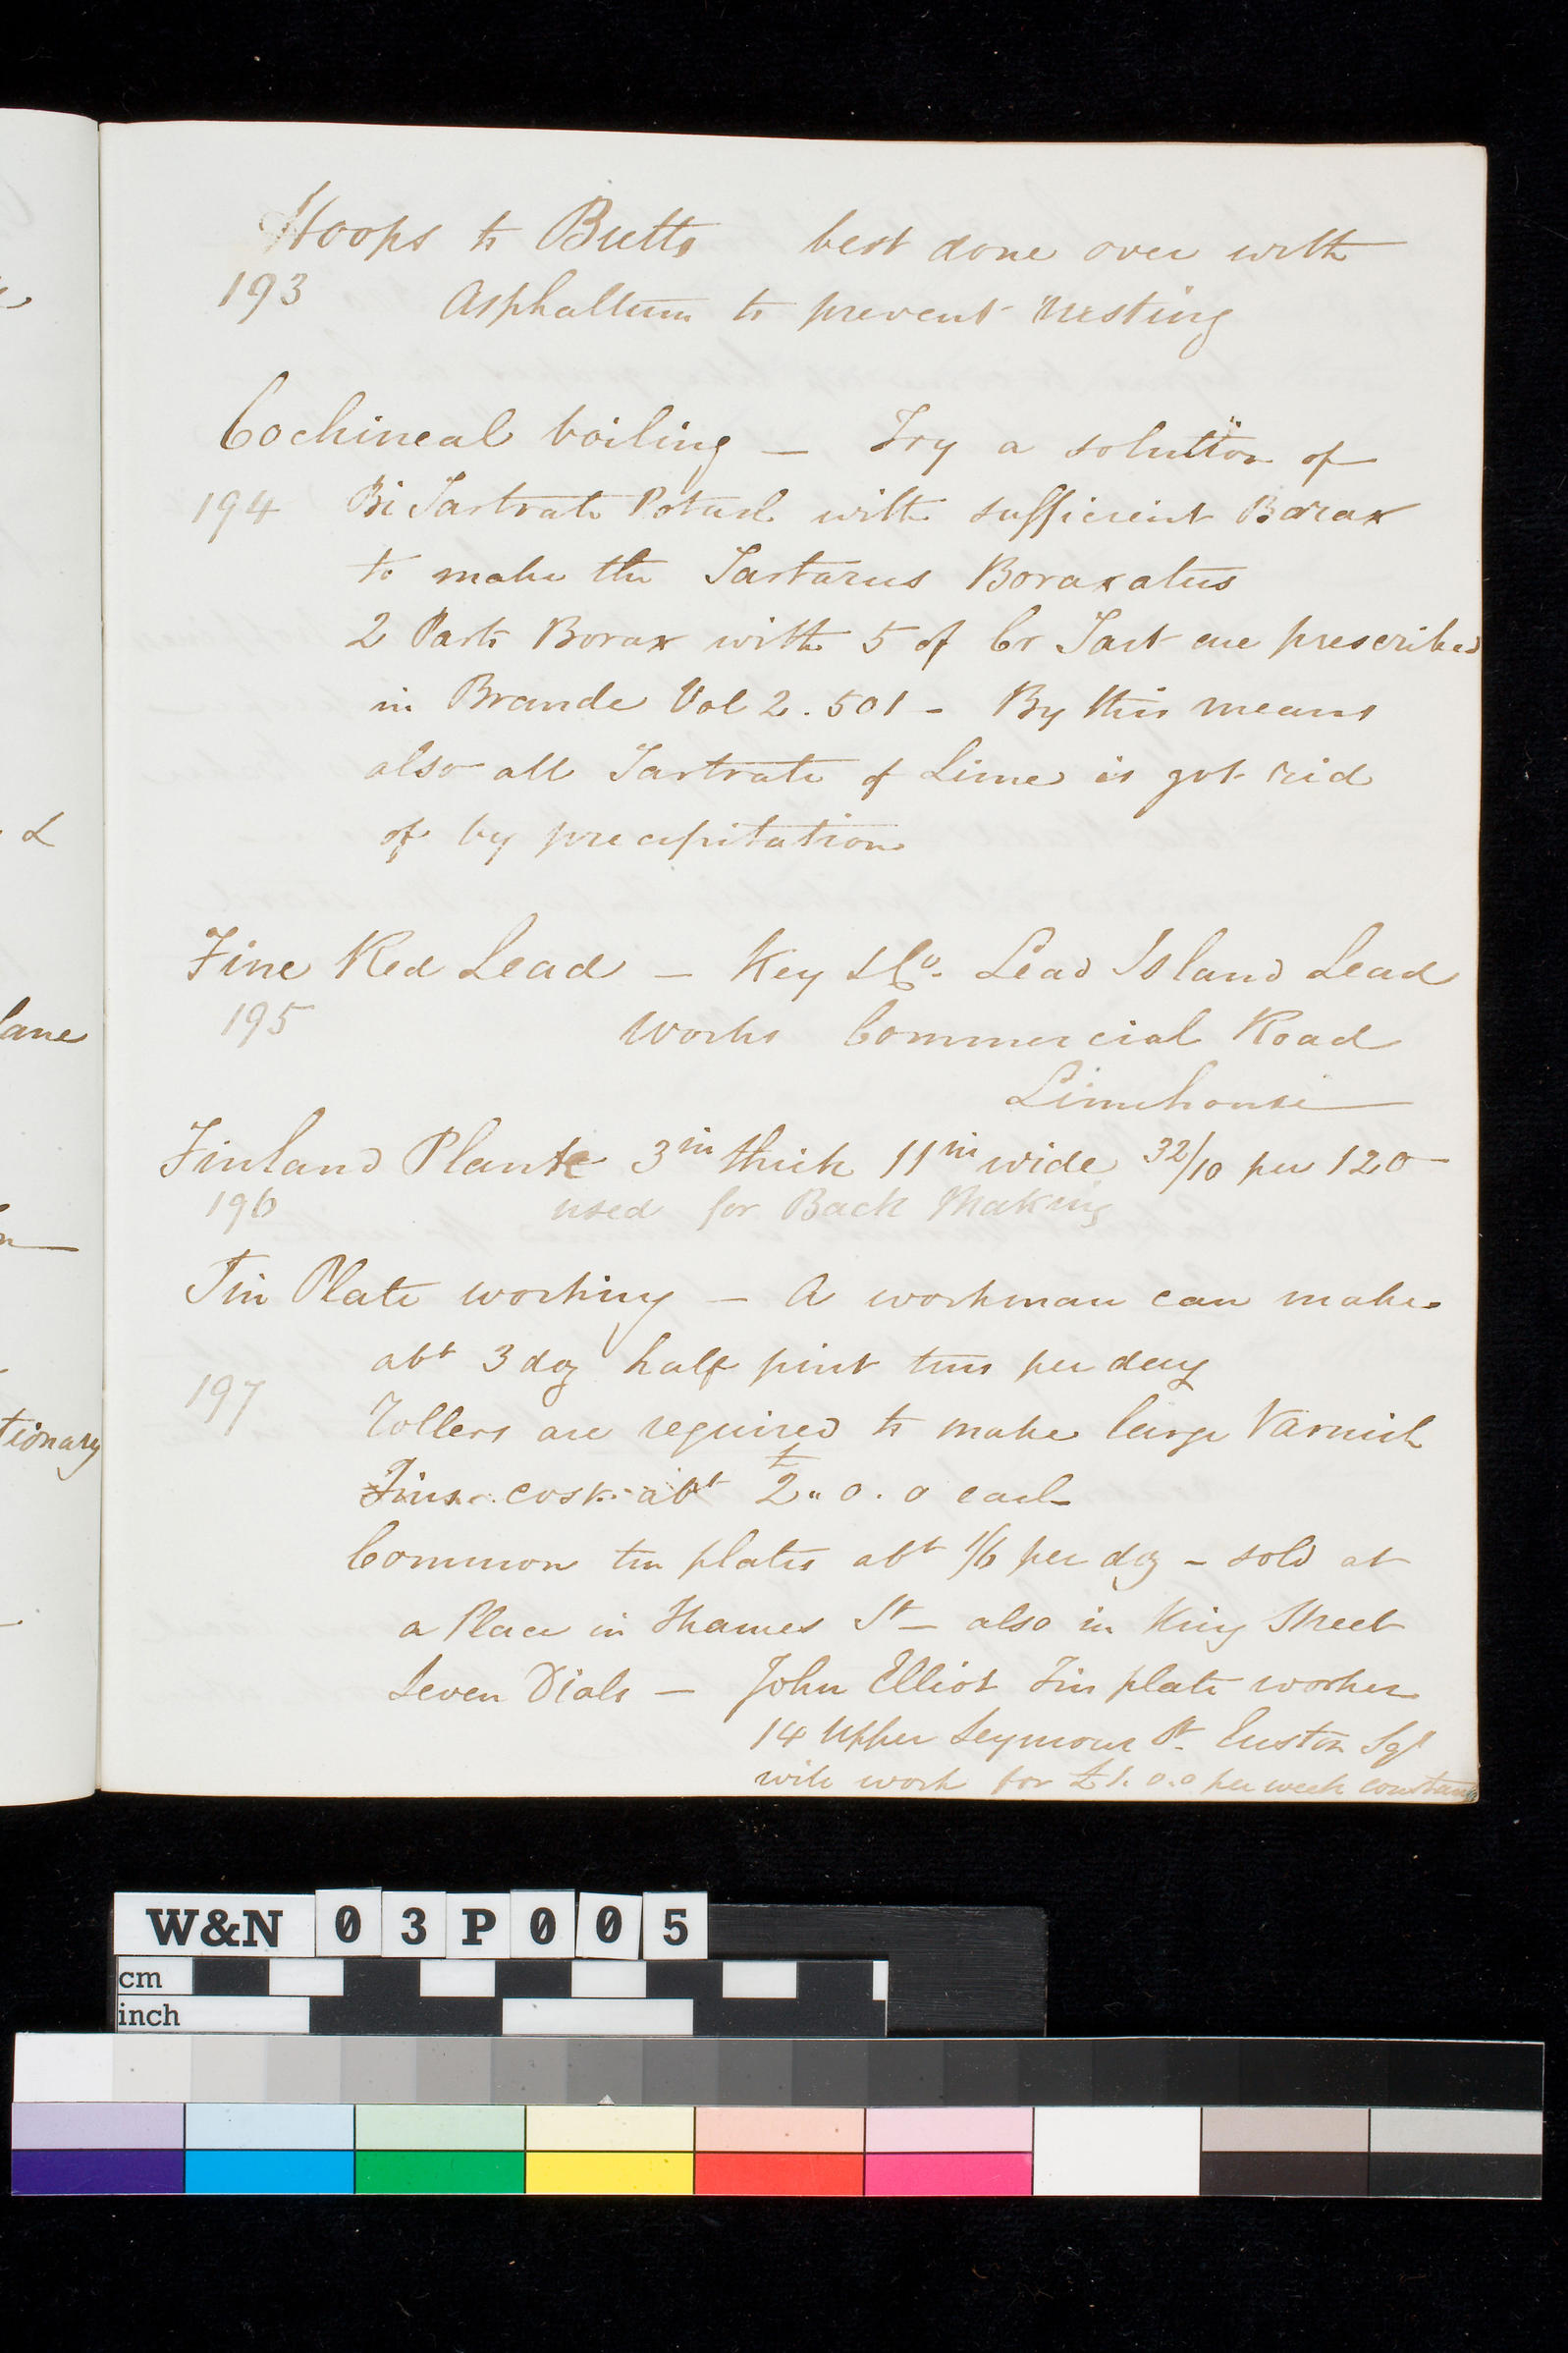 Hoops to Butts best done over with
193 Asphaltum to prevent rusting
Cochineal boiling — Try a solution of
194 Bi Tartrate Potash with sufficient Borax
to make the Tartarus Boraxatus
2 Parts Borax with 5 of Cr Tart are prescribed
in Brande Vol 2. 501 - By this means
also all Tartrate of Lime is got rid
of by precipitation
Fine Red Lead — Key & Co. Lead Island Lead
195 Works Commercial Road
Limehouse
Finland Plank 3in thick 11in wide 32/10 per 120
196 used for Back Making
Tin Plate working — A workman can make
abt 3 doz half pint tins per day
197
Rollers are required to make large Varnish
Tins cost abt £2.. 0. 0 each
Common tin plates abt 1/6 per doz - sold at
a Place in Thames St — also in King Street
Seven Dials — John Elliot Tin plate worker
14 Upper Seymour St. Euston Sqr
will work for £1. 0.0 per week constant
& 
lane
tionary
W&N 03P005
cm
inch